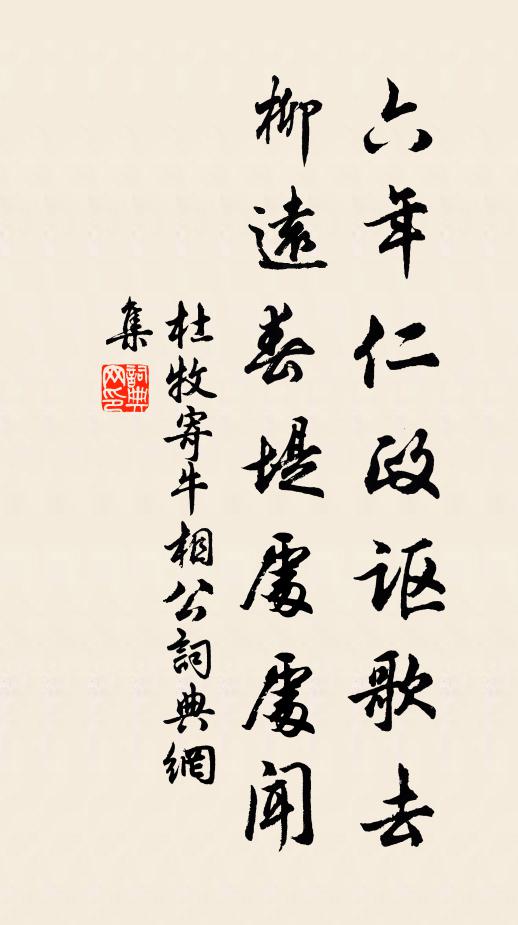 六年仁政讴歌去
柳遠春堤處處闻
杜牧寄牛相公詞典網
集
詞典網印